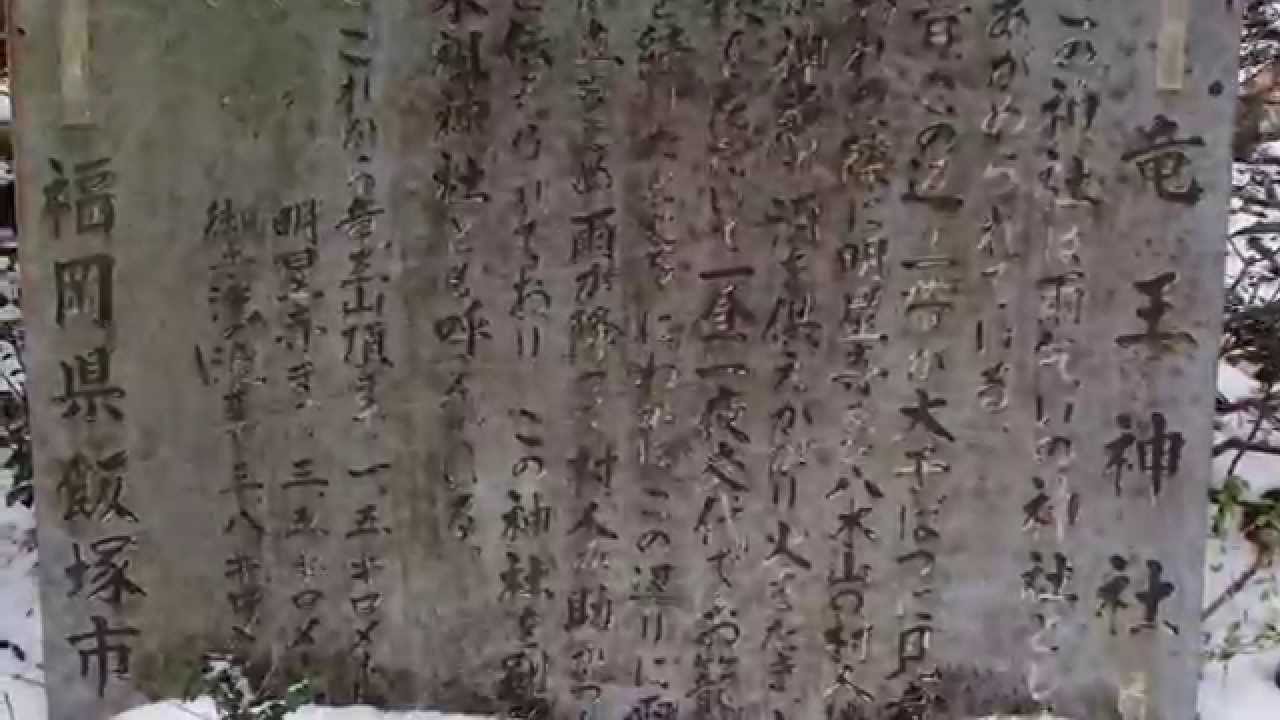 竜王神社
この神社は雨乞いの神社と
あがめられている
昔この辺一帯が大干ばつに
われた際に明星寺と八木山の村人
神前に酒を供えかがり火をたき
一昼一夜交代でお籠
を続けたところ にわかにこの辺りに雨
雨が降って村人が助かっ
と伝えられており この神社を
木神社とも呼ばれている
これから竜王山頂まで 一.五キロメート
明星寺まで 三.五キロメー
まで 三.八キロメ
福岡県飯塚市